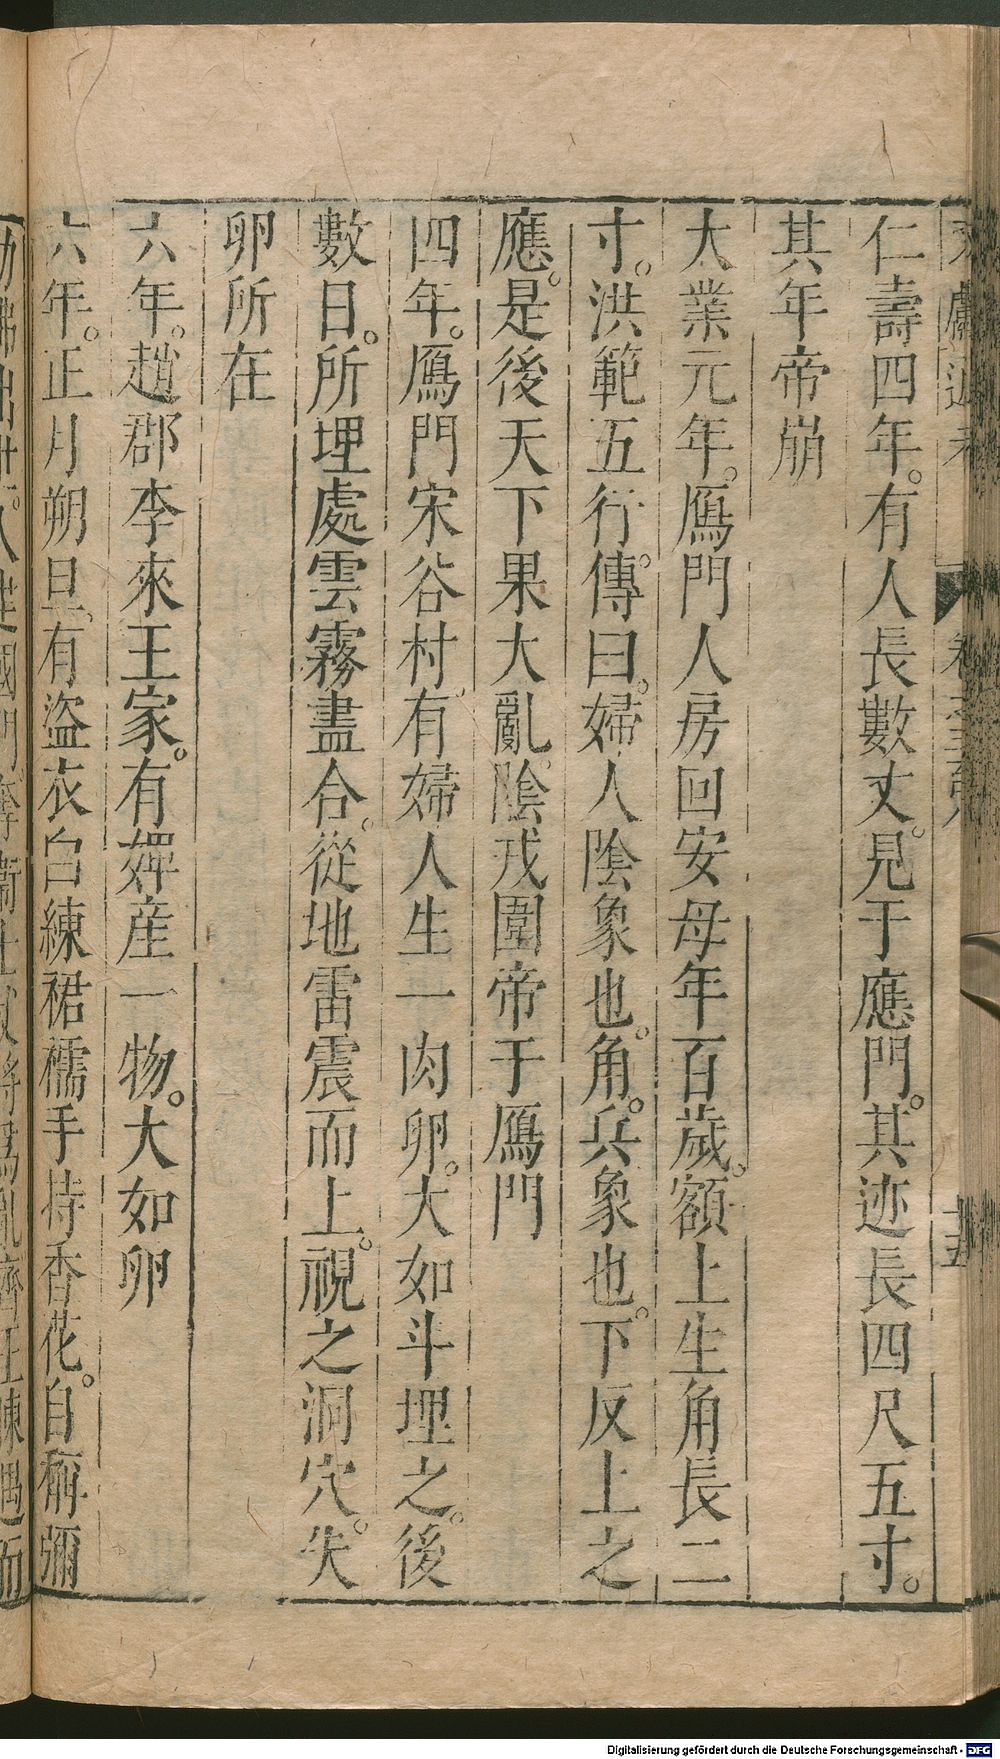 仁壽四年。有人長數丈。見于應門。其迹長四尺五寸。
其年帝崩
大業元年。鴈門人房回安母年百歲。額上生角長二
寸。洪範五行傳曰。婦人陰象也。角。兵象也。下反上之
應。是後天下果大亂。陰戎圍帝于鴈門
四年。鴈門宋谷村。有婦人生一肉卵。大如斗埋之。後
數日。所埋處雲霧盡合。從地雷震而上。視之洞穴。失
卵所在
六年。趙郡李來王家。有婢産一物。大如卵
六年。正月朔旦。有盜衣白練裙襦手持香花。自稱彌
Digitalisierung gefördert durch die Deutsche Forschungsgemeinschaft - DFG